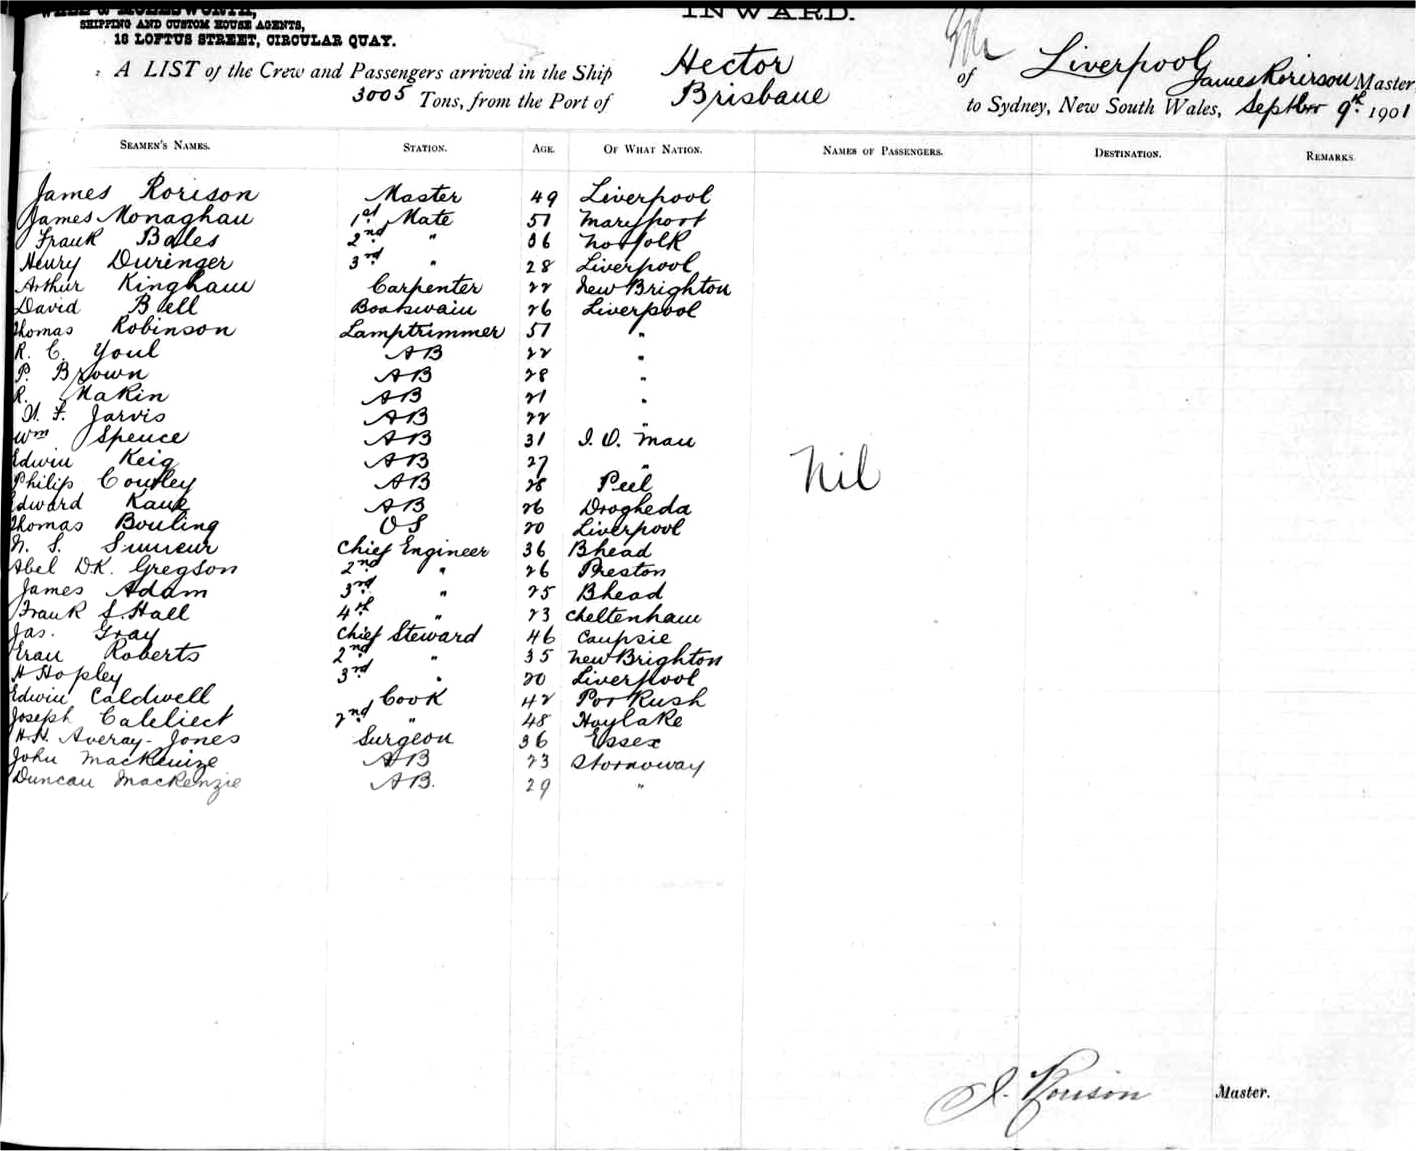 INWARD.
SHIPPING AND CUSTOM HOUSE AGENTS,
16 LOFTUS STREET, CIRCULAR QUAY.
A LIST of the Crew and Passengers arrived in the Ship Hector of Liverpool James Rorison Master,
3005 Tons, from the Port of Brisbane to Sydney, New South Wales, Septber 9th 1901
SEAMEN'S NAMES. STATION. AGE. OF WHAT NATION. NAMES OF PASSENGERS. DESTINATION. REMARKS.
James Rorison Master 49 Liverpool
James Monaghan 1st Mate 51 Maryport
Frank Bales 2nd " 36 Norfolk
Henry Duringer 3rd " 28 Liverpool
Arthur Kingham Carpenter 22 New Brighton
David Bell Boatswain 26 Liverpool
Thomas Robinson Lamptrimmer 51 "
R. C. Youl AB 22 "
P. Brown AB 28 "
R. Makin AB 21 "
F. Jarvis AB 22 "
Wm Spence AB 31 I. O. Man
Edwin Keig AB 27 "
Philip Courley AB 28 Peel
Nil
Edward Kane AB 26 Drogheda
Thomas Bouling OS 20 Liverpool
S. Chief Engineer 36 Bhead
Abel DK. Gregson 2nd " 26 Preston
James Adam 3rd " 25 Bhead
Frank S. Hall 4th " 23 Cheltenham
Jas. Gray Chief Steward 46 Campsie
Evan Roberts 2nd " 35 New Brighton
H Hopley 3rd " 20 Liverpool
Edwin Caldwell Cook 42 Portrush
Joseph 2nd " 48 Hoylake
H. H. Averay-Jones Surgeon 36 Essex
John MacKenzie AB 23 Stornoway
Duncan MacKenzie AB. 29 "
J. Rorison Master.